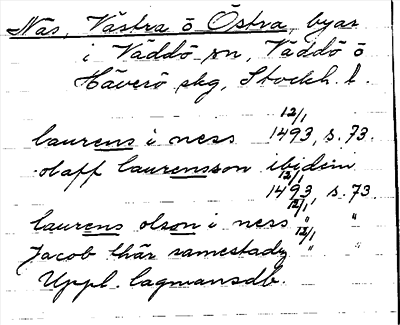 Näs, Västra o Östra, byar
i Väddö sn, Väddö o
Häverö skg, Stockh. l.
12/1
laurens i ness 1493, s. 73.
olaff laurensson ibidem
12/1
1493 s. 73.
12/1
laurens olson i ness " "
12/1
Jacob thär samestadz " "
Uppl. lagmansdb.